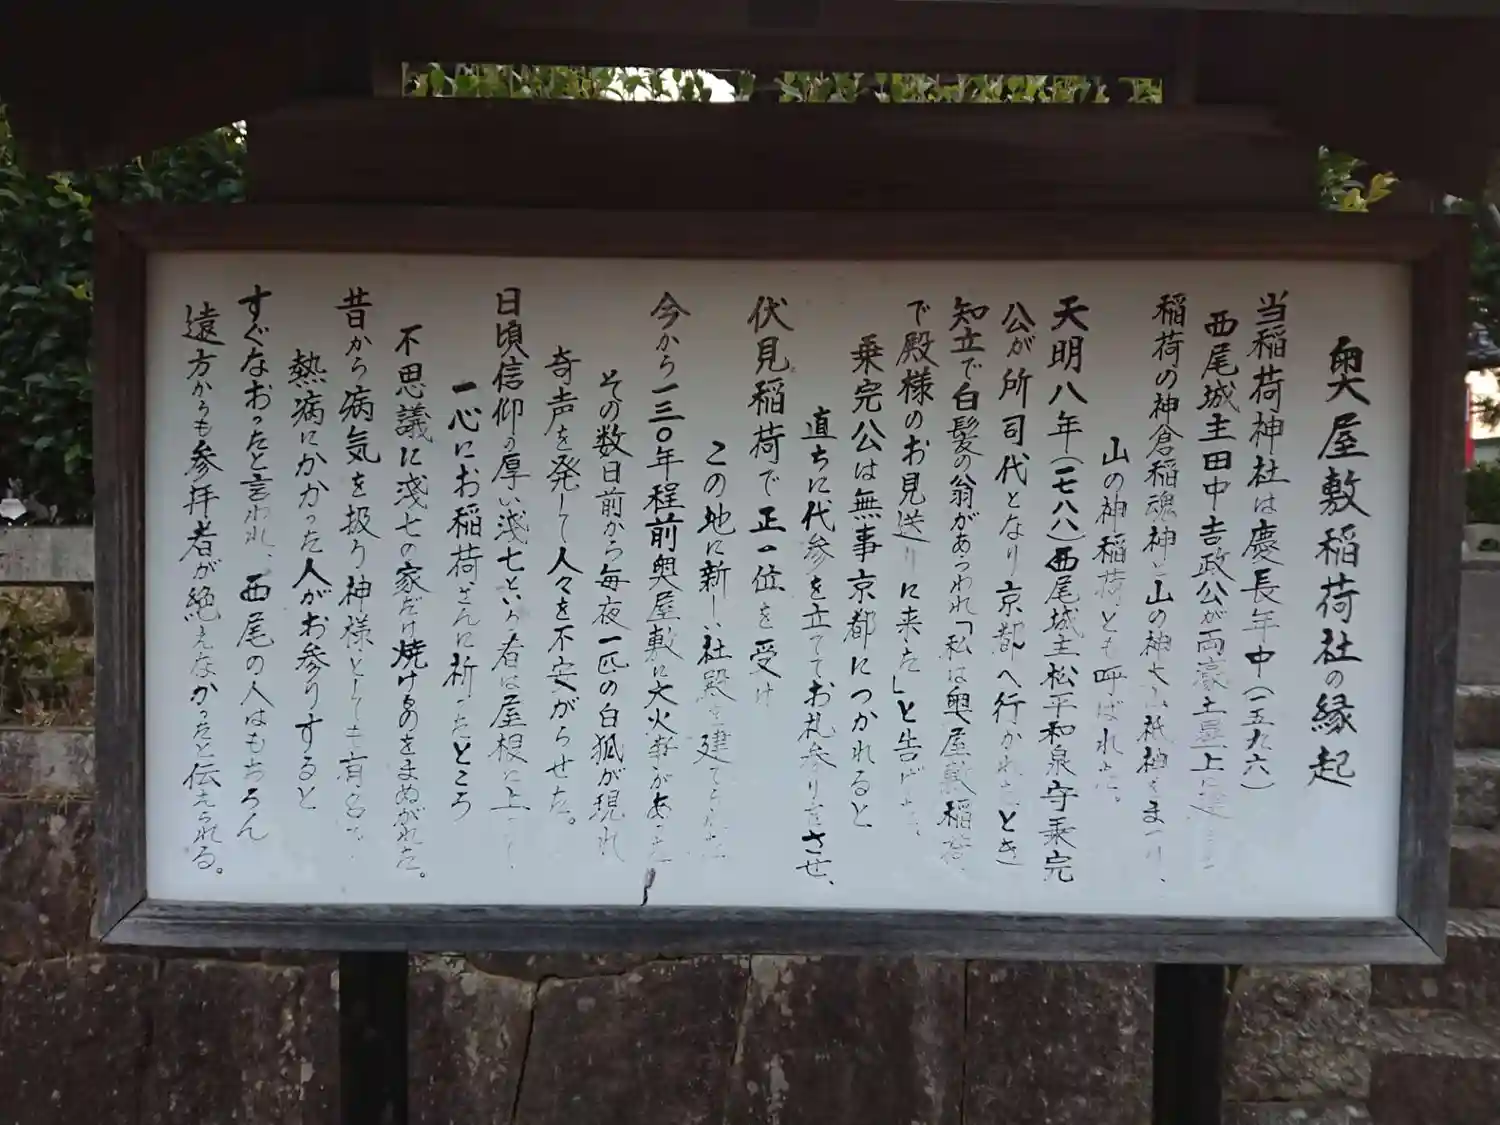 奥屋敷稲荷社の縁起
当稲荷神社は慶長年中(一五九六)
西尾城主田中吉政公が両豪土塁上に建
稲荷の神倉稲魂神と山の神大山祇神をまつり、
山の神稲荷とも呼ばれた。
天明八年(一七八八)西尾城主松平和泉守乗完
公が所司代となり京都へ行かれたとき
知立で白髪の翁があらわれ「私は奥屋敷稲荷
で殿様のお見送りに来た」と告げた。
乗完公は無事京都につかれると
直ちに代参を立ててお札参りをさせ、
伏見稲荷で正一位を受け
この地に新しい社殿を建てられた
今から一三〇年程前奥屋敷に大火事があった
その数日前から毎夜一匹の白狐が現れ
奇声を発して人々を不安がらせた。
日頃信仰の厚い浅七という者は屋根に上
一心にお稲荷さんに祈ったところ
不思議に浅七の家だけ焼けるのをまぬがれた。
昔から病気を扱う神様としても有名で
熱病にかかった人がお参りすると
すぐなおったと言われ、西尾の人はもちろん
遠方からも参拝者が絶えなかったと伝えられる。